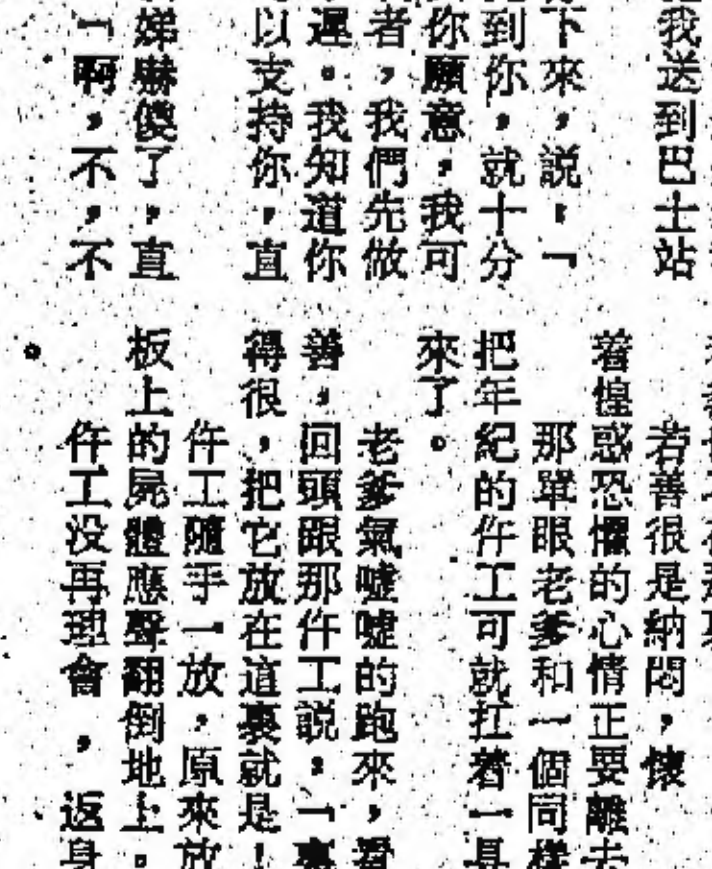 我送到巴士站
下來，説：「
到你，就十分
你願意，我可
者，我們先做
遲。我知道你
以支持你，直
娣嚇傻了，直
「啊，不，不
若善很是納悶，懷
着惶惑恐懼的心情正要離去
那單眼老爹和一個同樣
把年紀的仵工可就扛着一具
來了。
老爹氣噓噓的跑來，看
善，回頭跟那仵工説：「
得很，把它放在這裏就是！
仵工隨手一放，原來放
板上的屍體應聲翻倒地上。
仵工没再理會，返身
。